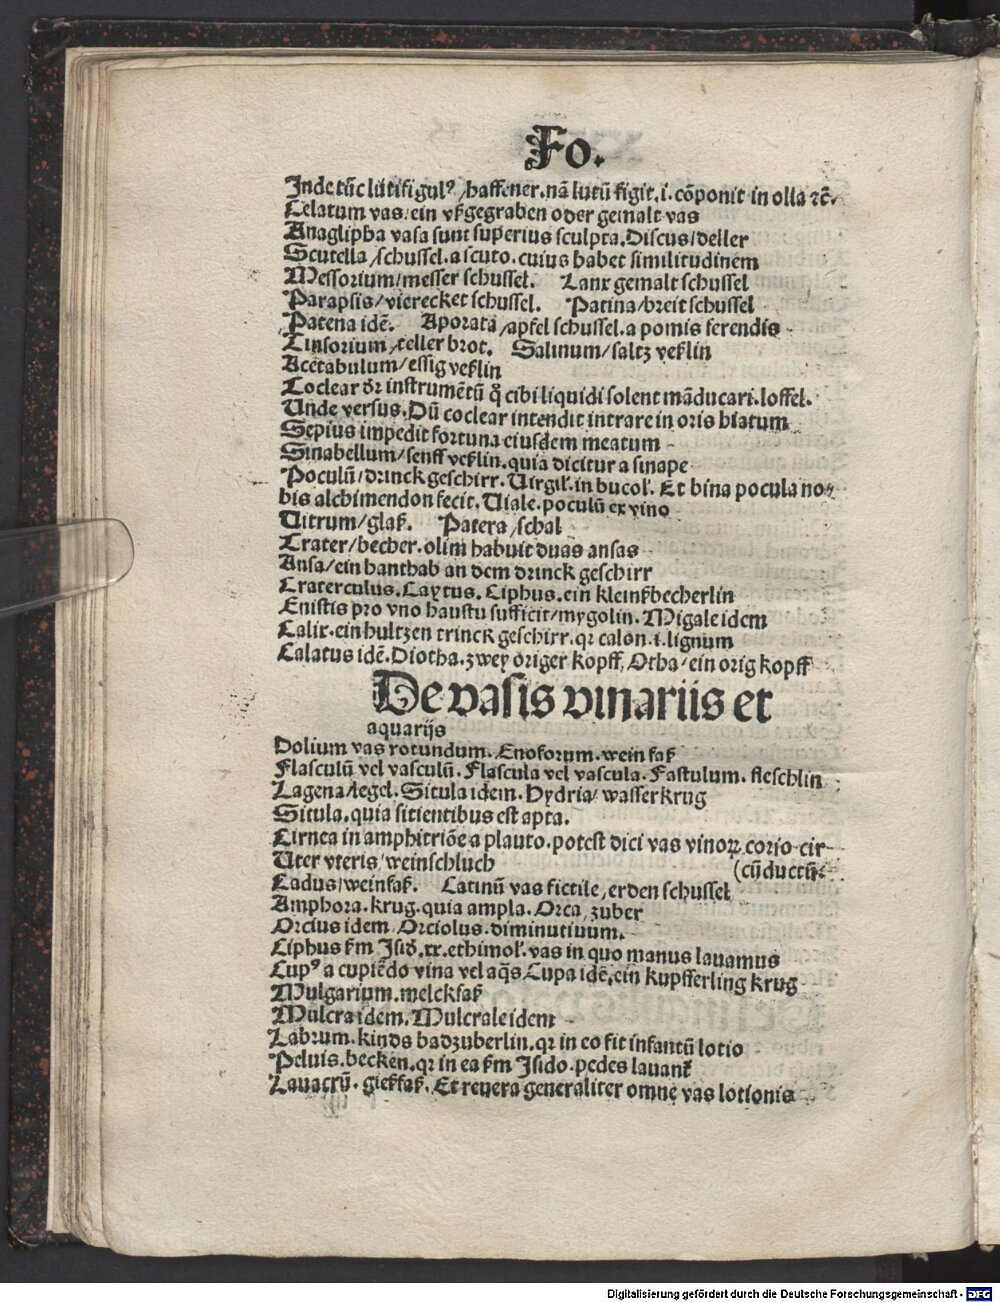 Fo.
Inde tūc lutifigulꝰ/haffener.nā lutū figit.i.cōponit in olla ⁊c̄.
Celatum vas/ein vßgegraben oder gemalt vas
Anaglipha vasa sunt superius sculpta.Discus/deller
Scutella/schussel.a scuto.cuius habet similitudinem
Messorium/messer schussel. Lanx gemalt schussel
Parapsis/vierecket schussel. Patina/breit schussel
Patena idē. Aporata/apfel schussel.a pomis ferendis
Cinsorium/teller brot. Salinum/saltz veßlin
Acetabulum/essig veßlin
Coclear dr instrumētū q̊ cibi liquidi solent māducari.loffel.
Unde versus.Dū coclear intendit intrare in oris hiatum
Sepius impedit fortuna eiusdem meatum
Sinabellum/senff veßlin.quia dicitur a sinape
Poculū/drinck geschirr.Virgil'.in bucol'. Et bina pocula no⸗
bis alchimendon fecit.Viale.poculū ex vino
Vitrum/glaß. Patera/schal
Crater/becher.olim habuit duas ansas
Ansa/ein hanthab an dem drinck geschirr
Craterculus.Caytus.Ciphus.ein kleinßbecherlin
Enistis pro vno haustu sufficit/mygolin.Migale idem
Calix.ein hultzen trinck geschirr.qr calon.i.lignum
Calatus idē.Diotha.zwey origer kopff,Otha/ein orig kopff
De vasis vinariis et
aquarijs
Dolium vas rotundum.Enoforum.wein faß
Flasculū vel vasculū.Flascula vel vascula.Fastulum.fleschlin
Lagena/legel.Situla idem.Hydria/wasserkrug
Situla.quia sitientibus est apta.
Cirnea in amphitriōe a plauto.potest dici vas vinoꝝ corio cir⸗
Uter vteris/weinschluch (cūductū.
Cadus/weinfaß. Catinū vas fictile,erden schussel
Amphora.krug.quia ampla.Orca,zuber
Orcius idem Orciolus.diminutiuum.
Ciphus ßm Isid̄.xx.ethimol'.vas in quo manus lauamus
Cupꝰ a cupiēdo vina vel aq̄s Cupa idē,ein kupfferling krug
Mulgarium.melckfaß
Mulcra idem.Mulcrale idem
Labrum.kinds badzuberlin.qr in eo fit infantū lotio
Peluis.becken.qr in ea ßm Isido.pedes lauant̄
Lauacrū.gießfaß.Et reuera generaliter omne vas lotionis
Digitalisierung gefördert durch die Deutsche Forschungsgemeinschaft - DFG